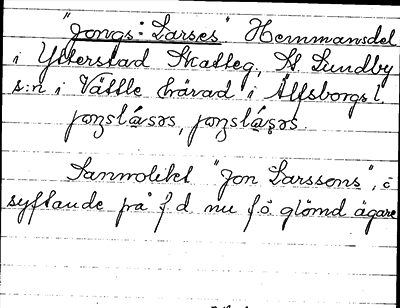 "Jongs: Larses" Hemmansdel
i Ytterstad Skatteg, St. Lundby
s:n i Vättle härad i Älfsborgs l.
joŋslásəs, joŋsláṣəs.
Sannolikt "Jon Larssons",
syftande på f.d. nu f.ö. glömd ägare